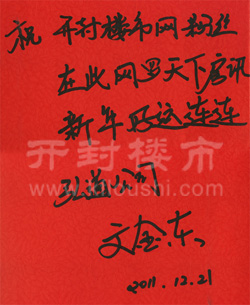 祝 开封楼市网粉丝
在此网罗天下房讯
新年好运连连
开封楼市
www.kfloushi.com
弘益公司
文金东
2011.12.21